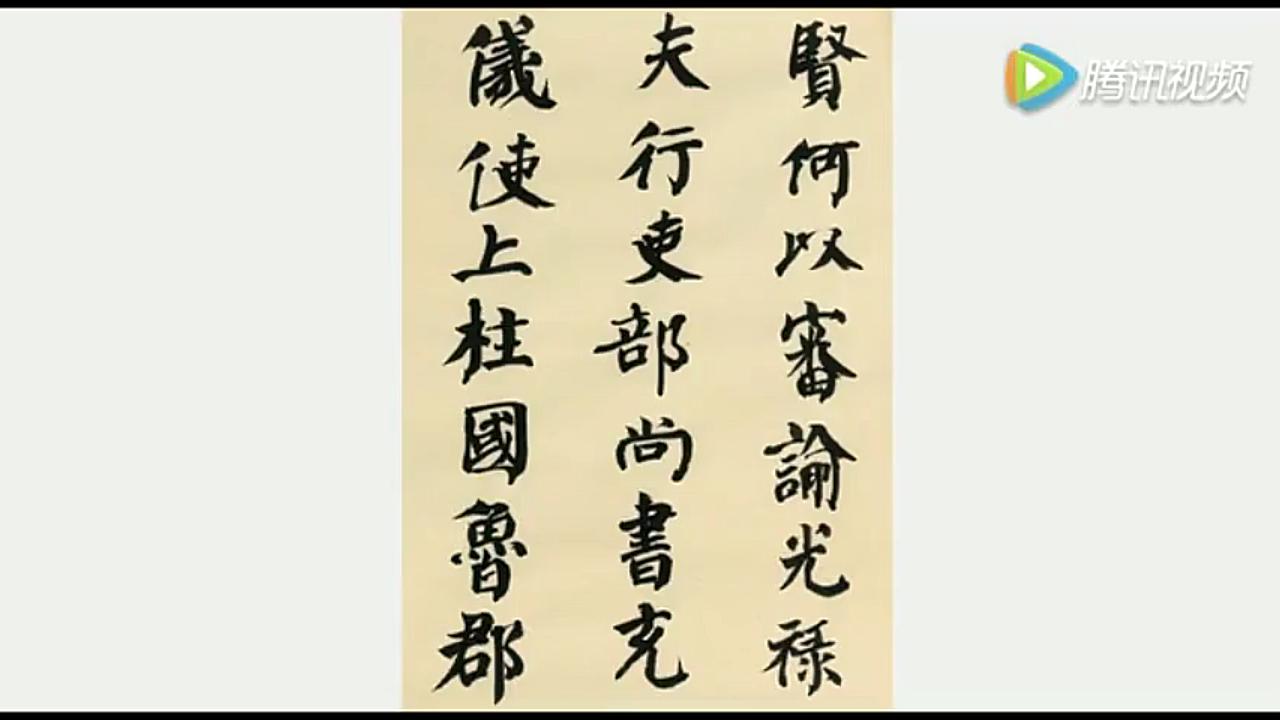 賢何以審諭光祿
夫行吏部尚書充
儀使上柱國魯郡
腾讯视频